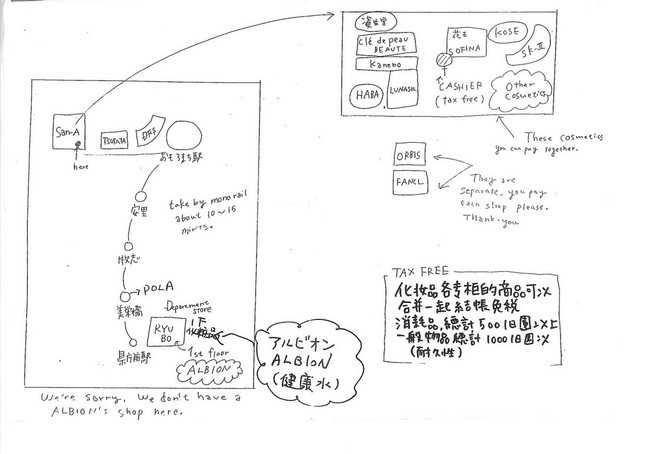 San-A
here
TSUTAYA
DFS
おもろまち駅
安里
take by monorail
about 10〜15
minutes.
牧志
POLA
美栄橋
Department
store
RYU
BO
1F
化粧品
1st floor
ALBION
県庁前駅
We're sorry, we don't have a
ALBION's shop here.
アルビオン
ALBION
(健康水)
資生堂
Clé de peau
BEAUTE
Kanebo
HABA
LUNASOL
花王
SOFINA
KOSE
SK-II
CASHIER
(tax free)
Other
Cosmetics
These cosmetics
you can pay together.
ORBIS
FANCL
They are
separate, you pay
each shop please.
Thank you
TAX FREE
化妝品各专柜的商品可以
合并一起結帳免税
消耗品,總計5001日圓以上
一般物品總計10001日圓以
(耐久性)